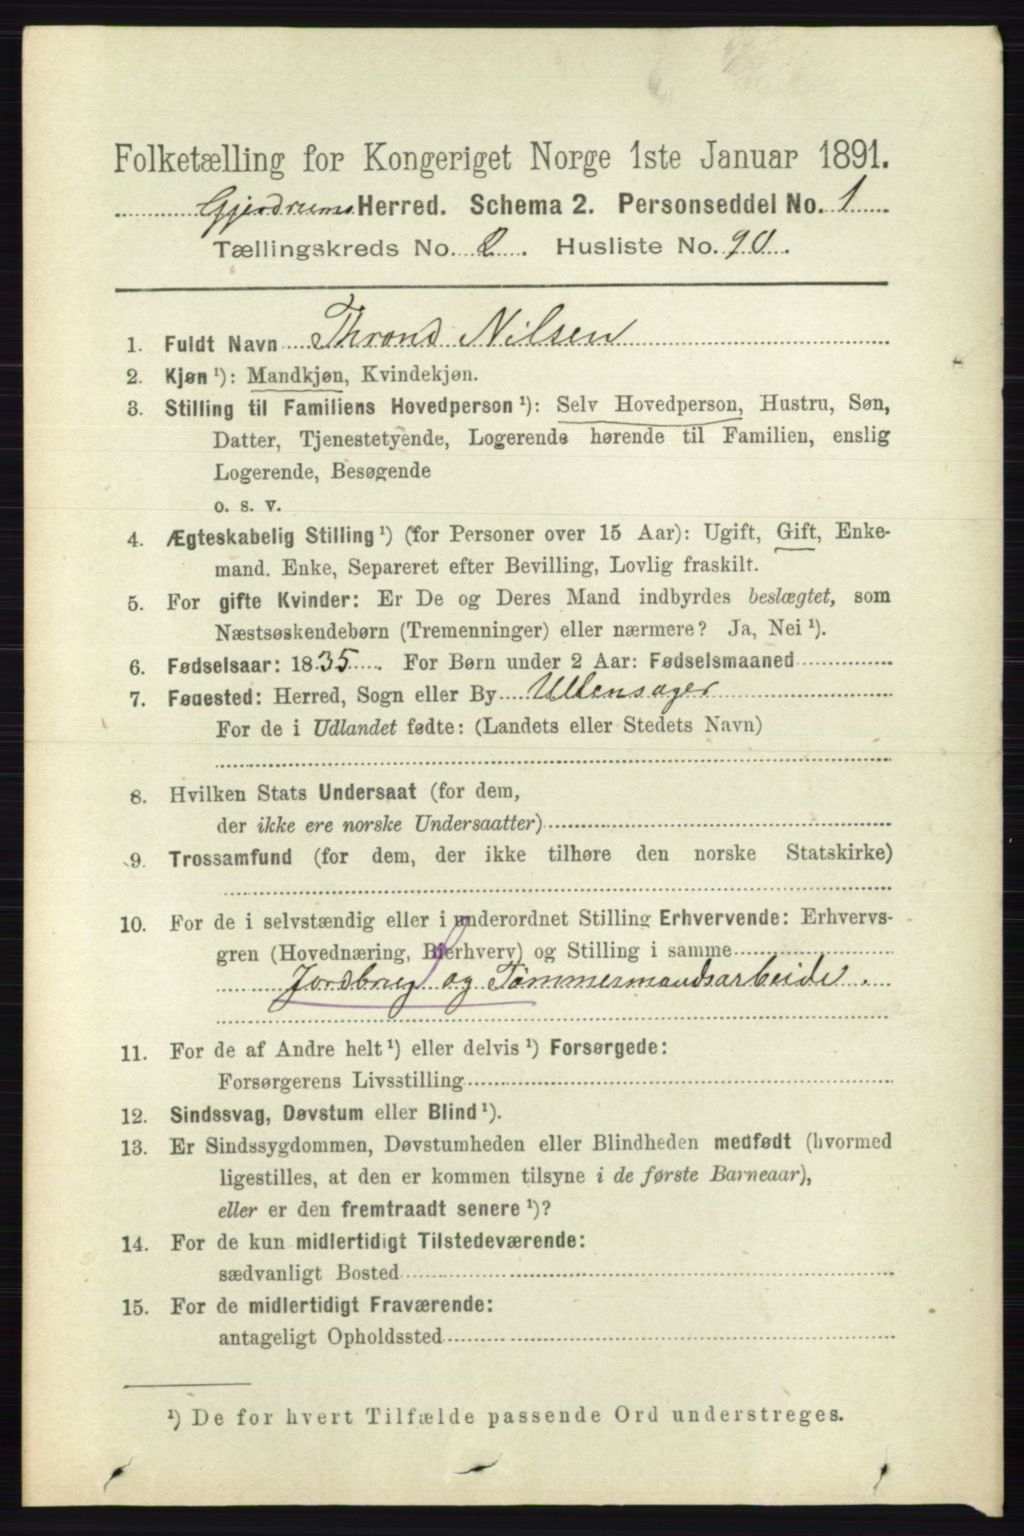 Folketælling for Kongeriget Norge 1ste Januar 1891.
Gjerdrums Herred. Schema 2. Personseddel No. 1
Tællingskreds No. 2. Husliste No. 90.
1. Fuldt Navn Thrond Nilsen
2. Kjøn ¹): Mandkjøn, Kvindekjøn.
3. Stilling til Familiens Hovedperson ¹): Selv Hovedperson, Hustru, Søn,
Datter, Tjenestetyende, Logerende hørende til Familien, enslig
Logerende, Besøgende
o. s. v.
4. Ægteskabelig Stilling ¹) (for Personer over 15 Aar): Ugift, Gift, Enke-
mand. Enke, Separeret efter Bevilling, Lovlig fraskilt.
5. For gifte Kvinder: Er De og Deres Mand indbyrdes beslægtet, som
Næstsøskendebørn (Tremenninger) eller nærmere? Ja, Nei ¹).
6. Fødselsaar: 1835. For Børn under 2 Aar: Fødselsmaaned
7. Fødested: Herred, Sogn eller By Ullensager
For de i Udlandet fødte: (Landets eller Stedets Navn)
8. Hvilken Stats Undersaat (for dem,
der ikke ere norske Undersaatter)
9. Trossamfund (for dem, der ikke tilhøre den norske Statskirke)
10. For de i selvstændig eller i underordnet Stilling Erhvervende: Erhvervs-
gren (Hovednæring, Bierhverv) og Stilling i samme
Jordbrug og Tømmermandsarbeide.
11. For de af Andre helt ¹) eller delvis ¹) Forsørgede:
Forsørgerens Livsstilling
12. Sindssvag, Døvstum eller Blind ¹).
13. Er Sindssygdommen, Døvstumheden eller Blindheden medfødt (hvormed
ligestilles, at den er kommen tilsyne i de første Barneaar),
eller er den fremtraadt senere ¹)?
14. For de kun midlertidigt Tilstedeværende:
sædvanligt Bosted
15. For de midlertidigt Fraværende:
antageligt Opholdssted
¹) De for hvert Tilfælde passende Ord understreges.